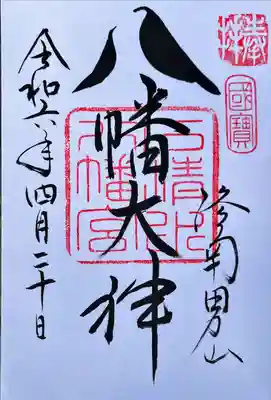 奉拝
國寶
洛南男山
八幡大神
石清水八幡宮
令和六年四月二十日